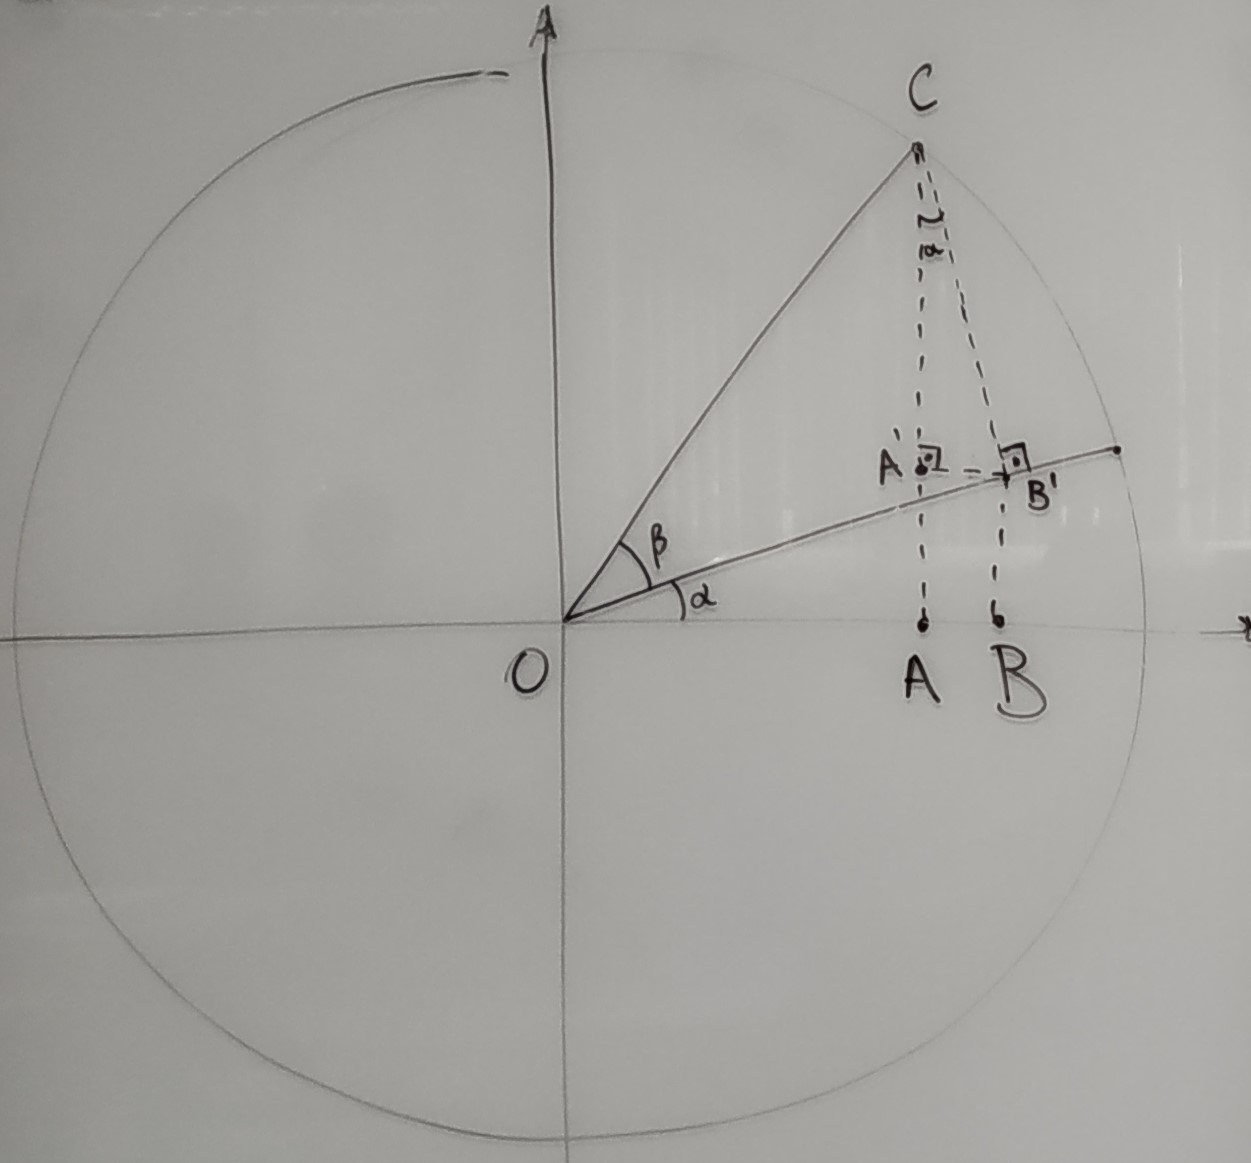 C
α
A'
B'
β
α
O
A
B